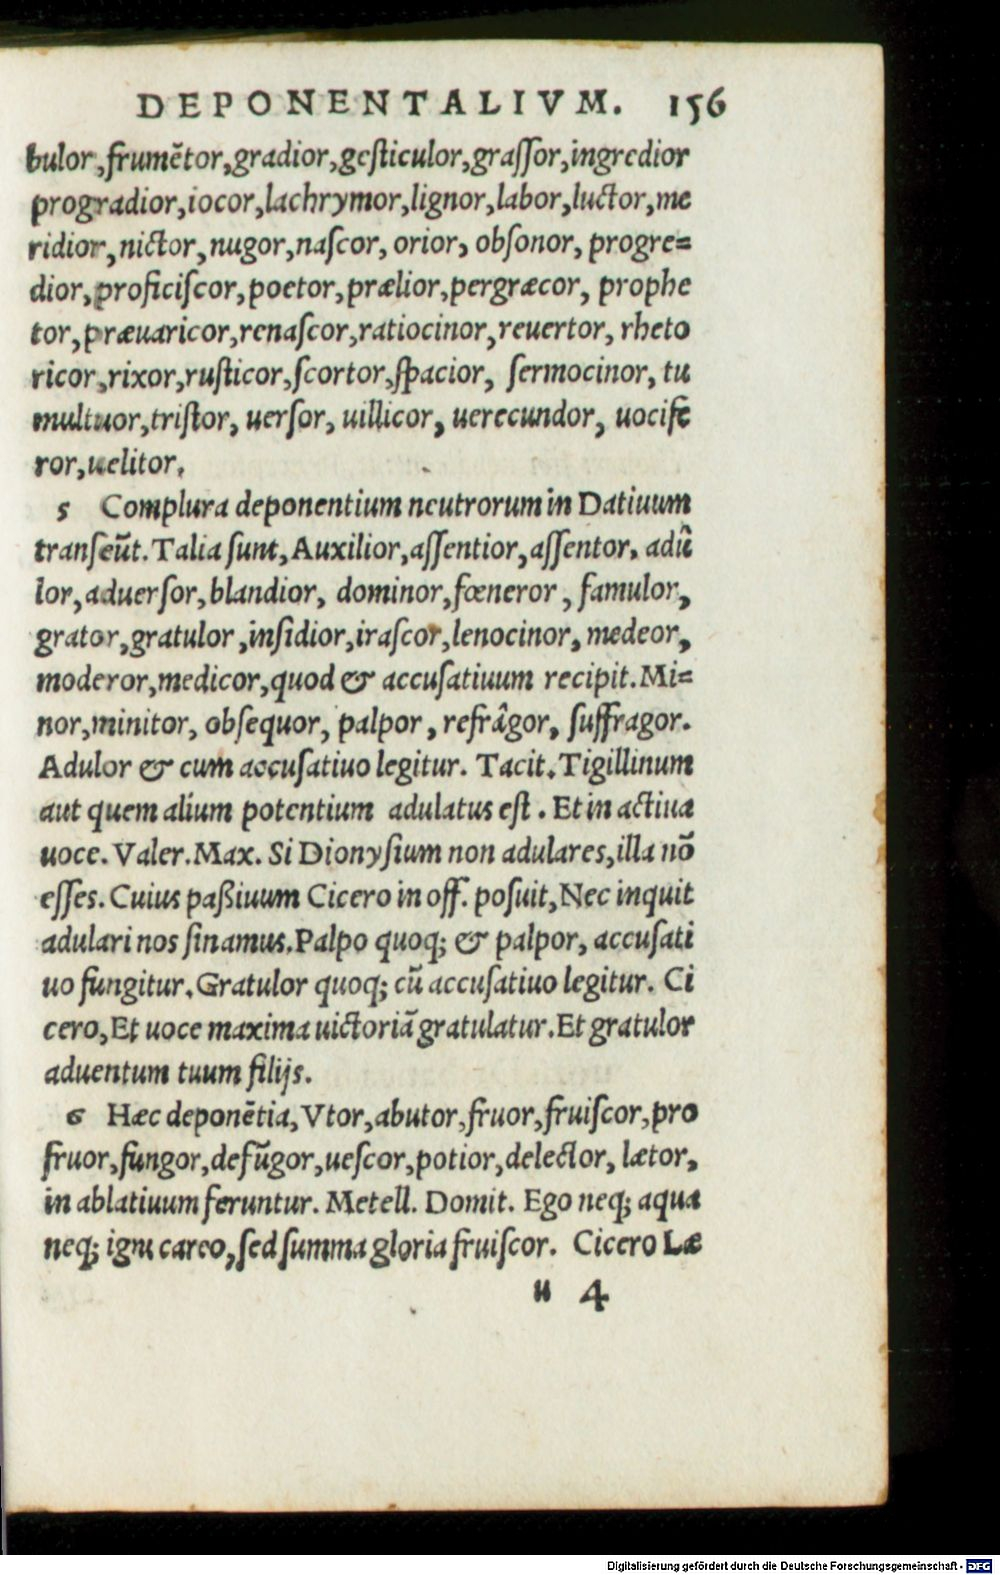 DEPONENTALIVM. 156
bulor,frumētor,gradior,gesticulor,grassor,ingredior
progradior,iocor,lachrymor,lignor,labor,luctor,me
ridior,nictor,nugor,nascor, orior, obsonor, progre=
dior,proficiscor,poetor,prælior,pergræcor, prophe
tor,præuaricor,renascor,ratiocinor,reuertor, rheto
ricor,rixor,rusticor,scortor,spacior, sermocinor, tu
multuor,tristor, uersor, uillicor, uerecundor, uocife
ror,uelitor.
5 Complura deponentium neutrorum in Datiuum
transeūt. Talia sunt, Auxilior,assentior,assentor, adū
lor,aduersor,blandior, dominor,fœneror, famulor,
grator,gratulor,insidior,irascor,lenocinor,medeor,
moderor,medicor,quod & accusatiuum recipit. Mi=
nor,minitor, obsequor, palpor, refrâgor, suffragor.
Adulor & cum accusatiuo legitur. Tacit. Tigillinum
aut quem alium potentium adulatus est. Et in actiua
uoce. Valer. Max. Si Dionysium non adulares,illa nō
esses. Cuius paßiuum Cicero in off. posuit, Nec inquit
adulari nos sinamus. Palpo quoq; & palpor, accusati
uo fungitur. Gratulor quoq; cū accusatiuo legitur. Ci
cero, Et uoce maxima uictoriā gratulatur. Et gratulor
aduentum tuum filijs.
6 Hæc deponētia, Vtor,abutor,fruor,fruiscor,pro
fruor,fungor,defūgor,uescor,potior,delector, lætor,
in ablatiuum feruntur. Metell. Domit. Ego neq; aqua
neq; igni careo,sed summa gloria fruiscor. Cicero Læ
u 4
Digitalisierung gefördert durch die Deutsche Forschungsgemeinschaft - DFG